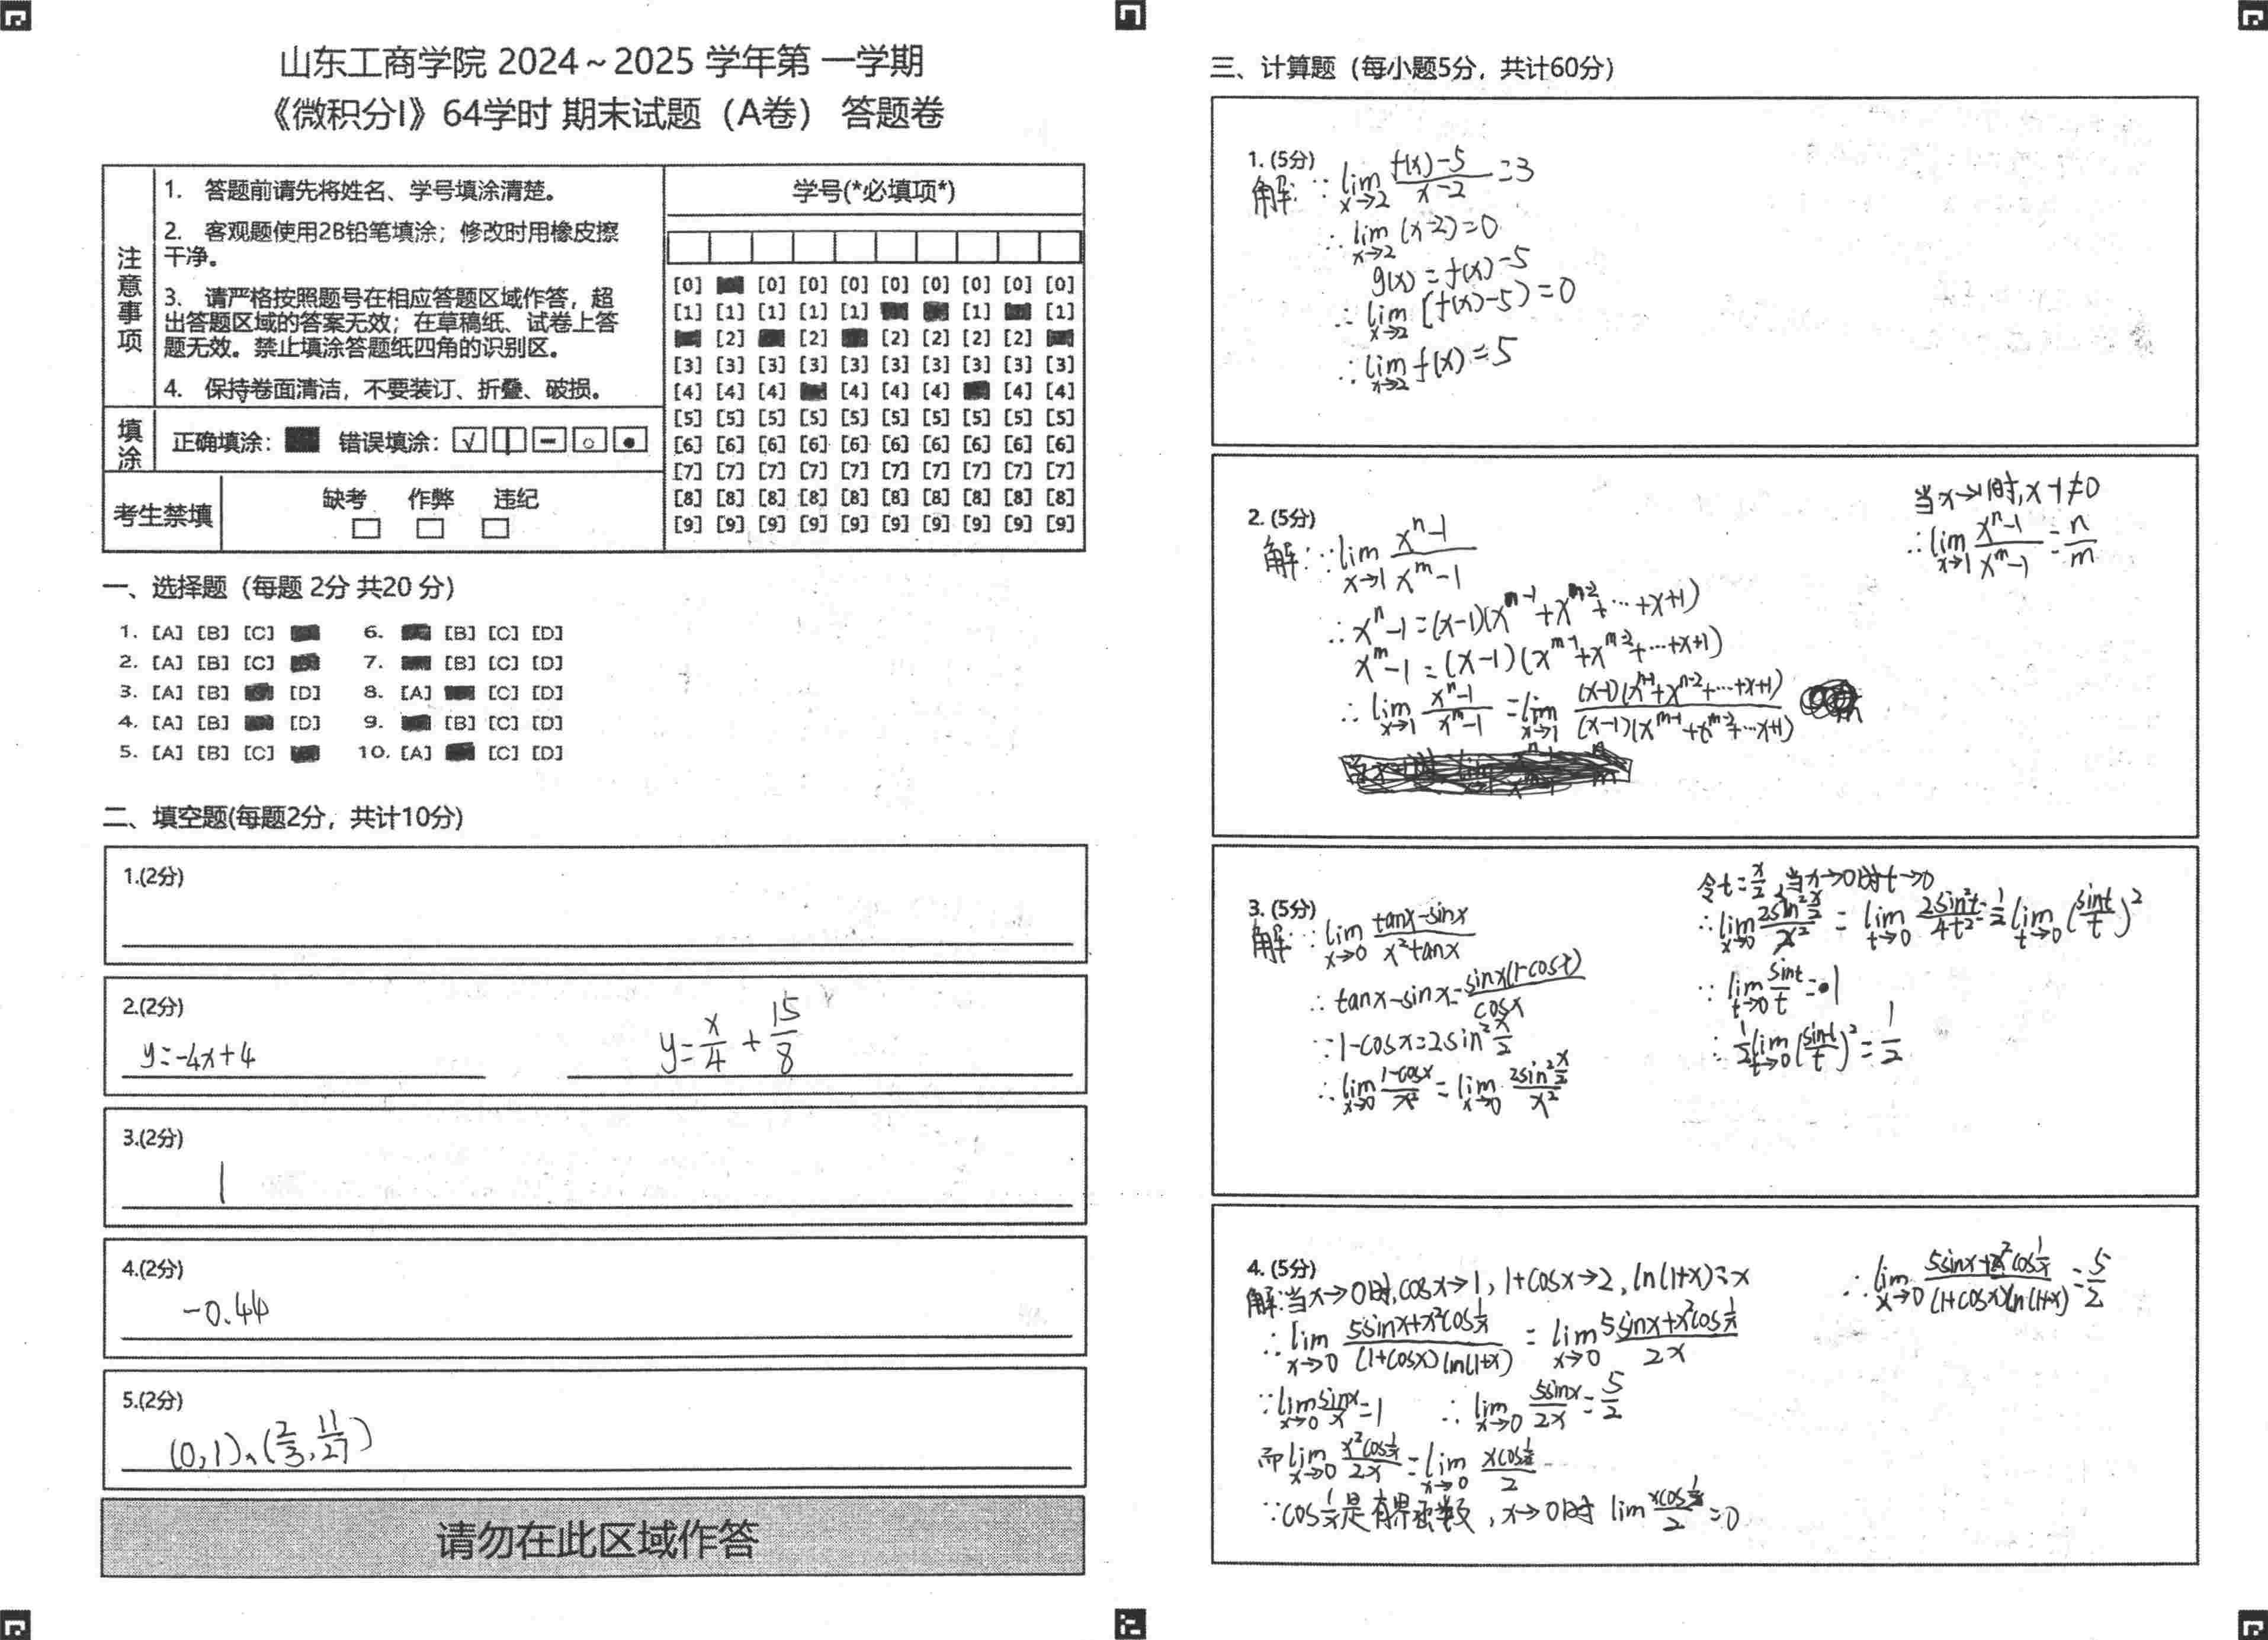 山东工商学院 2024～2025 学年第 一学期
《微积分I》64学时 期末试题（A卷） 答题卷
注意事项
1. 答题前请先将姓名、学号填涂清楚。
2. 客观题使用2B铅笔填涂；修改时用橡皮擦
干净。
3. 请严格按照题号在相应答题区域作答，超
出答题区域的答案无效；在草稿纸、试卷上答
题无效。禁止填涂答题纸四角的识别区。
4. 保持卷面清洁，不要装订、折叠、破损。
填涂 正确填涂： 错误填涂：
考生禁填 缺考 作弊 违纪
学号(*必填项*)
[0] [0] [0] [0] [0] [0] [0] [0] [0]
[1] [1] [1] [1] [1] [1] [1]
[2] [2] [2] [2] [2] [2]
[3] [3] [3] [3] [3] [3] [3] [3] [3] [3]
[4] [4] [4] [4] [4] [4] [4] [4]
[5] [5] [5] [5] [5] [5] [5] [5] [5] [5]
[6] [6] [6] [6] [6] [6] [6] [6] [6] [6]
[7] [7] [7] [7] [7] [7] [7] [7] [7] [7]
[8] [8] [8] [8] [8] [8] [8] [8] [8] [8]
[9] [9] [9] [9] [9] [9] [9] [9] [9] [9]
一、选择题（每题 2分 共20 分）
1. [A] [B] [C] 6. [B] [C] [D]
2. [A] [B] [C] 7. [B] [C] [D]
3. [A] [B] [D] 8. [A] [C] [D]
4. [A] [B] [D] 9. [B] [C] [D]
5. [A] [B] [C] 10. [A] [C] [D]
二、填空题(每题2分，共计10分)
1.(2分)
2.(2分)
y=-4x+4 y=x/4+15/8
3.(2分)
1
4.(2分)
-0.44
5.(2分)
(0,1)、(2/3,11/27)
请勿在此区域作答
三、计算题（每小题5分，共计60分）
1. (5分)
解:∵lim x→2 (f(x)-5)/(x-2)=3
∴lim x→2 (x-2)=0
g(x)=f(x)-5
∴lim x→2 [f(x)-5)=0
∴lim x→2 f(x)=5
2. (5分)
解:∵lim x→1 (x^n-1)/(x^m-1)
∴x^n-1=(x-1)(x^(n-1)+x^(n-2)+…+x+1)
x^m-1=(x-1)(x^(m-1)+x^(m-2)+…+x+1)
∴lim x→1 (x^n-1)/(x^m-1)=lim x→1 (x-1)(x^(n-1)+x^(n-2)+…+x+1)/(x-1)(x^(m-1)+x^(m-2)+…x+1)
当x→1时,x-1≠0
∴lim x→1 (x^n-1)/(x^m-1)=n/m
3. (5分)
解:∵lim x→0 (tanx-sinx)/(x²tanx)
∴tanx-sinx=sinx(1-cosx)/cosx
∵1-cosx=2sin²x/2
∴lim x→0 (1-cosx)/x²=lim x→0 (2sin²x/2)/x²
令t=x/2,当x→0时t→0
∴lim x→0 (2sin²x/2)/x²=lim t→0 2sin²t/4t²=1/2 lim t→0 (sint/t)²
∵lim t→0 sint/t=1
∴1/2 lim t→0 (sint/t)²=1/2
4. (5分)
解:当x→0时,cosx→1,1+cosx→2,ln(1+x)~x
∴lim x→0 (5sinx+x²cos1/x)/((1+cosx)ln(1+x))=lim x→0 (5sinx+x²cos1/x)/2x
∵lim x→0 sinx/x=1 ∴lim x→0 5sinx/2x=5/2
而lim x→0 (x²cos1/x)/2x=lim x→0 (xcos1/x)/2
∵cos1/x是有界函数,x→0时 lim (xcos1/x)/2=0
∴lim x→0 (5sinx+x²cos1/x)/((1+cosx)ln(1+x))=5/2